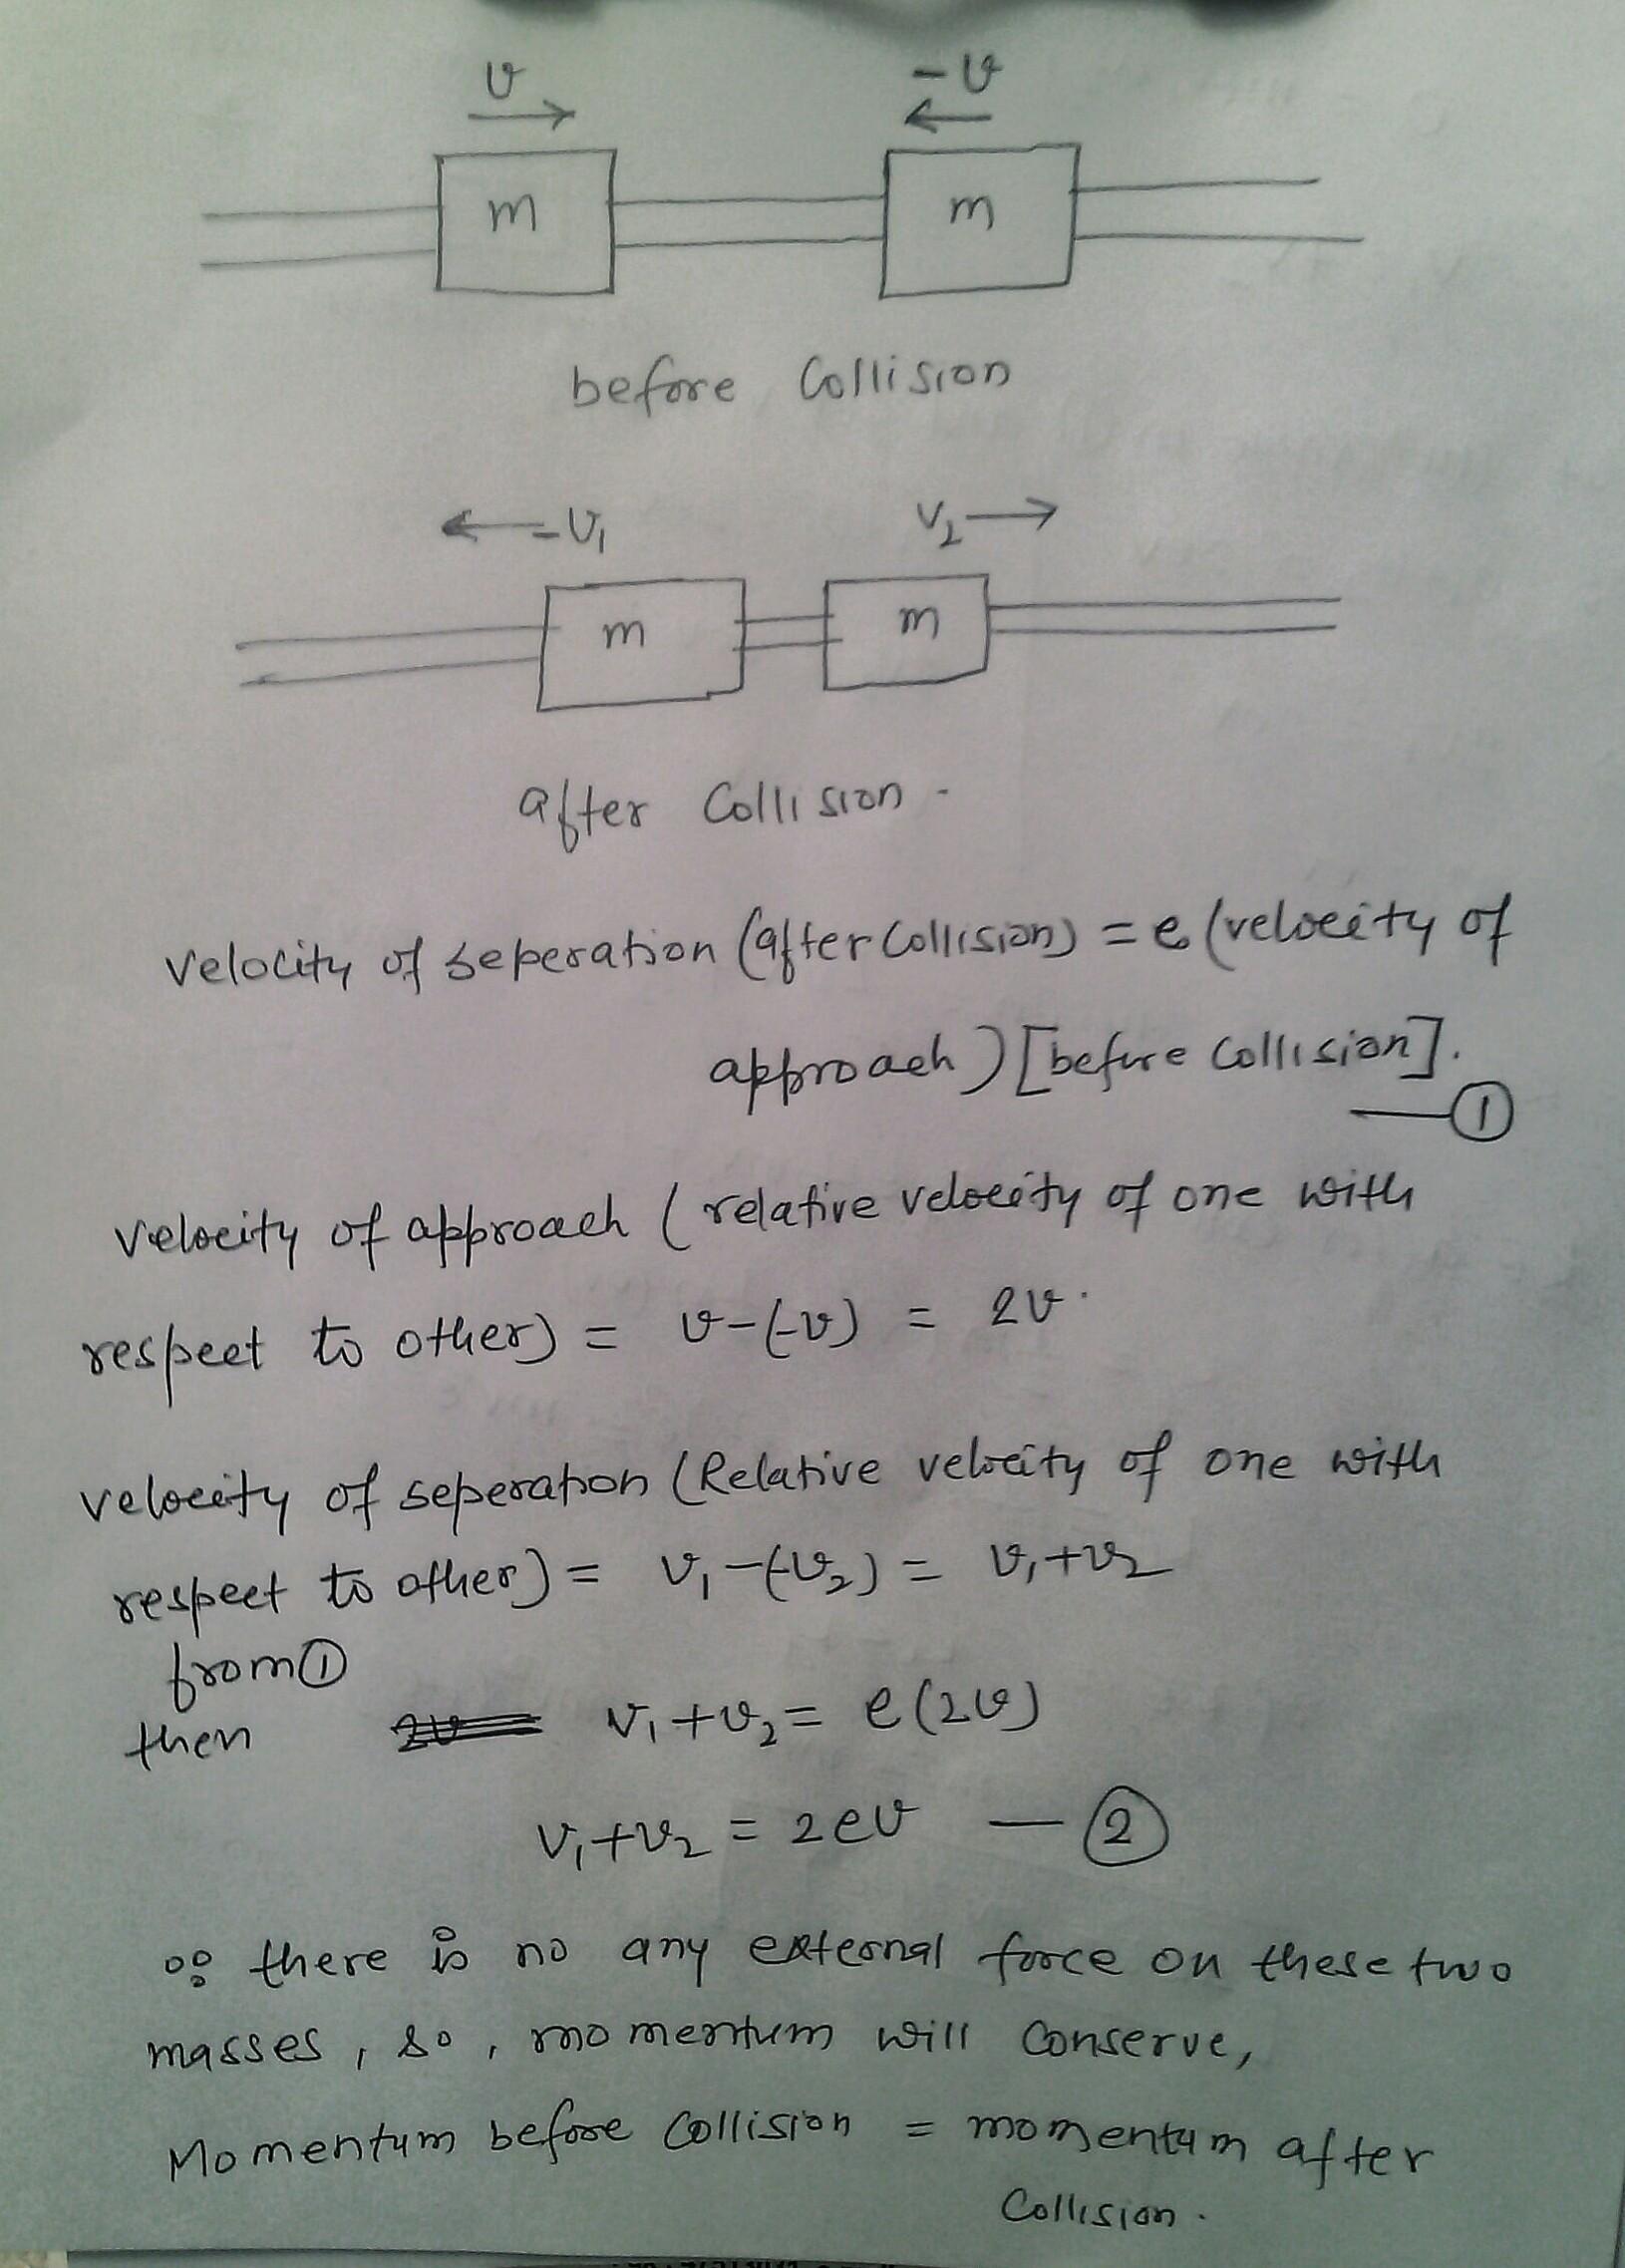 v
-v
m
m
before Collision
-v₁
v₂
m
m
after Collision.
velocity of seperation (after Collision) = e (velocity of
approach) [before collision].
—①
velocity of approach (relative velocity of one with
respect to other) = v-(-v) = 2v.
velocity of seperation (Relative velocity of one with
respect to other) = v₁-(-v₂) = v₁+v₂
from①
then v₁+v₂ = e(2v)
v₁+v₂ = 2ev —②
∵ there is no any external force on these two
masses, so, momentum will conserve,
Momentum before collision = momentum after
Collision.